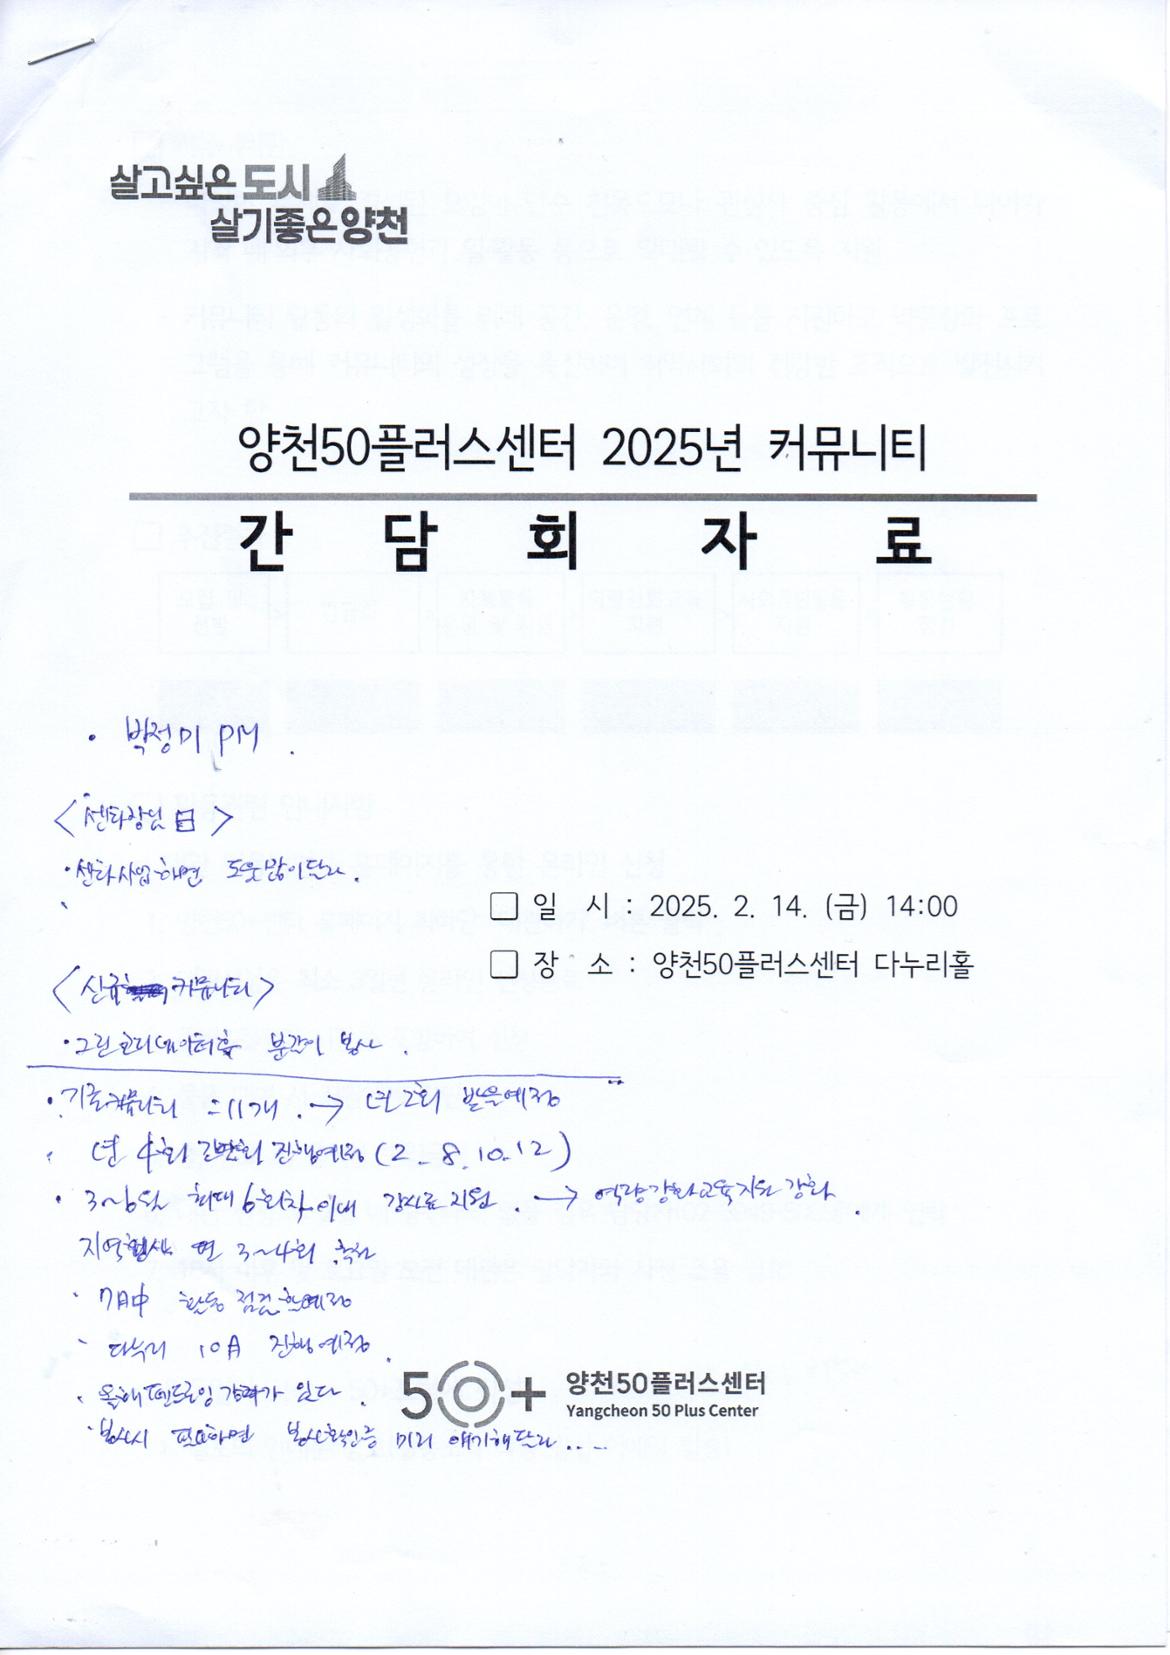 살고싶은 도시
살기좋은양천
양천50플러스센터 2025년 커뮤니티
간 담 회 자 료
• 박정미 PM .
<센타장님 曰>
• 센타사업하면 도움많이달라.
□ 일 시 : 2025. 2. 14. (금) 14:00
□ 장 소 : 양천50플러스센터 다누리홀
<신규 커뮤니티>
• 그린코디네이터 봉사 .
• 기존커뮤니티 11개 . → 년 2회 예정
년 4회 간담회 진행예정 (2. 8. 10. 12)
• 3~6월 최대 6회차이내 강사료 지원 . → 역량강화교육지원 강화 .
지역 연 3~4회
• 7月中 활동 점검 예정
다누리 10月 진행예정 .
• 올해 가 있다 .
• 봉사시 필요하면 봉사확인증 미리 얘기해달라 . . . .
50+ 양천50플러스센터
Yangcheon 50 Plus Center